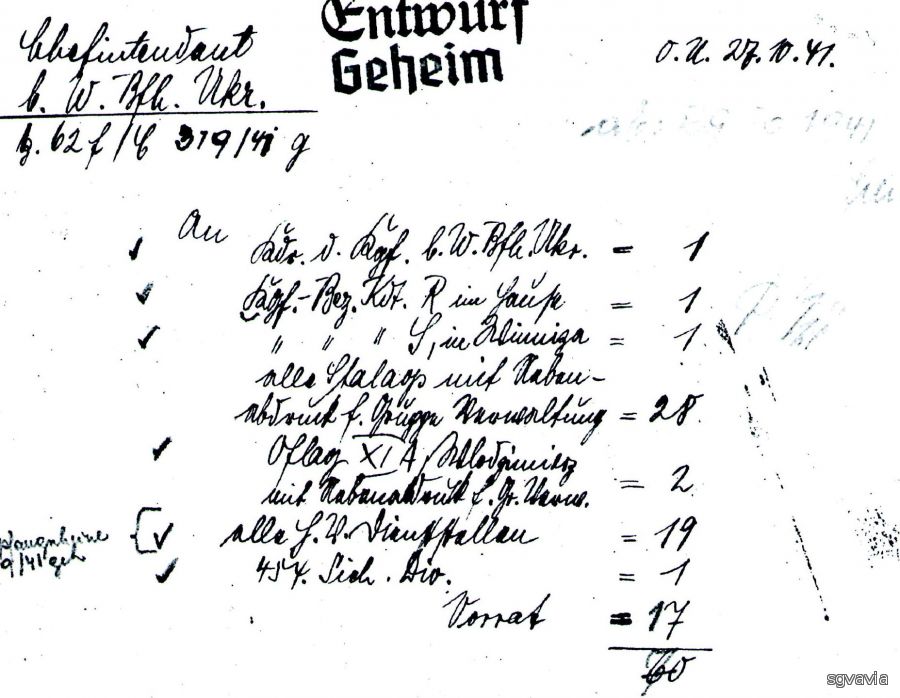 Entwurf
Geheim
Chefintendant
b. W. Bfh. Ukr.
O.U. 27.10.41.
Az. 62 f / C 319/41 g
1941
An
Kdr. d. Kgf. b. W. Bfh. Ukr. = 1
Kgf.-Bez. Kdt. R im Hause = 1
" " " S, in Winniza = 1
alle Stalags mit Neben-
abdruck f. Gruppe Verwaltung = 28
Oflag XI A, Wlodzimierz
mit Nebenabdruck f. Gr. Verw. = 2
alle H.V. Dienststellen = 19
9/41 geh
454. Sich. Div. = 1
Vorrat = 17
sgvavia